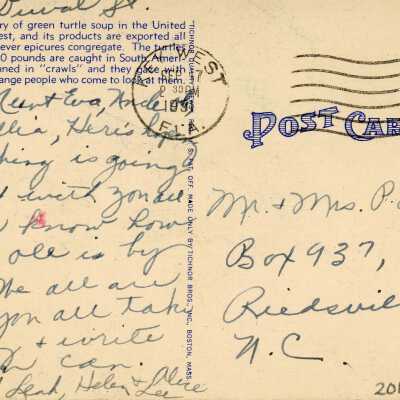 Duval St.
ry of green turtle soup in the United
st, and its products are exported all
ever epicures congregate. The turtle
0 pounds are caught in South Amer-
nned in "crawls" and they pace with
ange people who come to look at them.
Aunt Eva, Uncle
llia, Here's hop
thing is going
t with you all
know how
all is by
We all are
you all take
+ write
can.
Leah, Helen + Alice
Lee
TICHNOR QUALITY VIEWS, REG. U. S. PAT. OFF. MADE ONLY BY TICHNOR BROS., INC., BOSTON, MASS.
KEY WEST
SEP 17
30 PM
1951
FLA.
POST CAR
Mr. + Mrs. P.
Box 937,
Reidsvil
N.C.
201